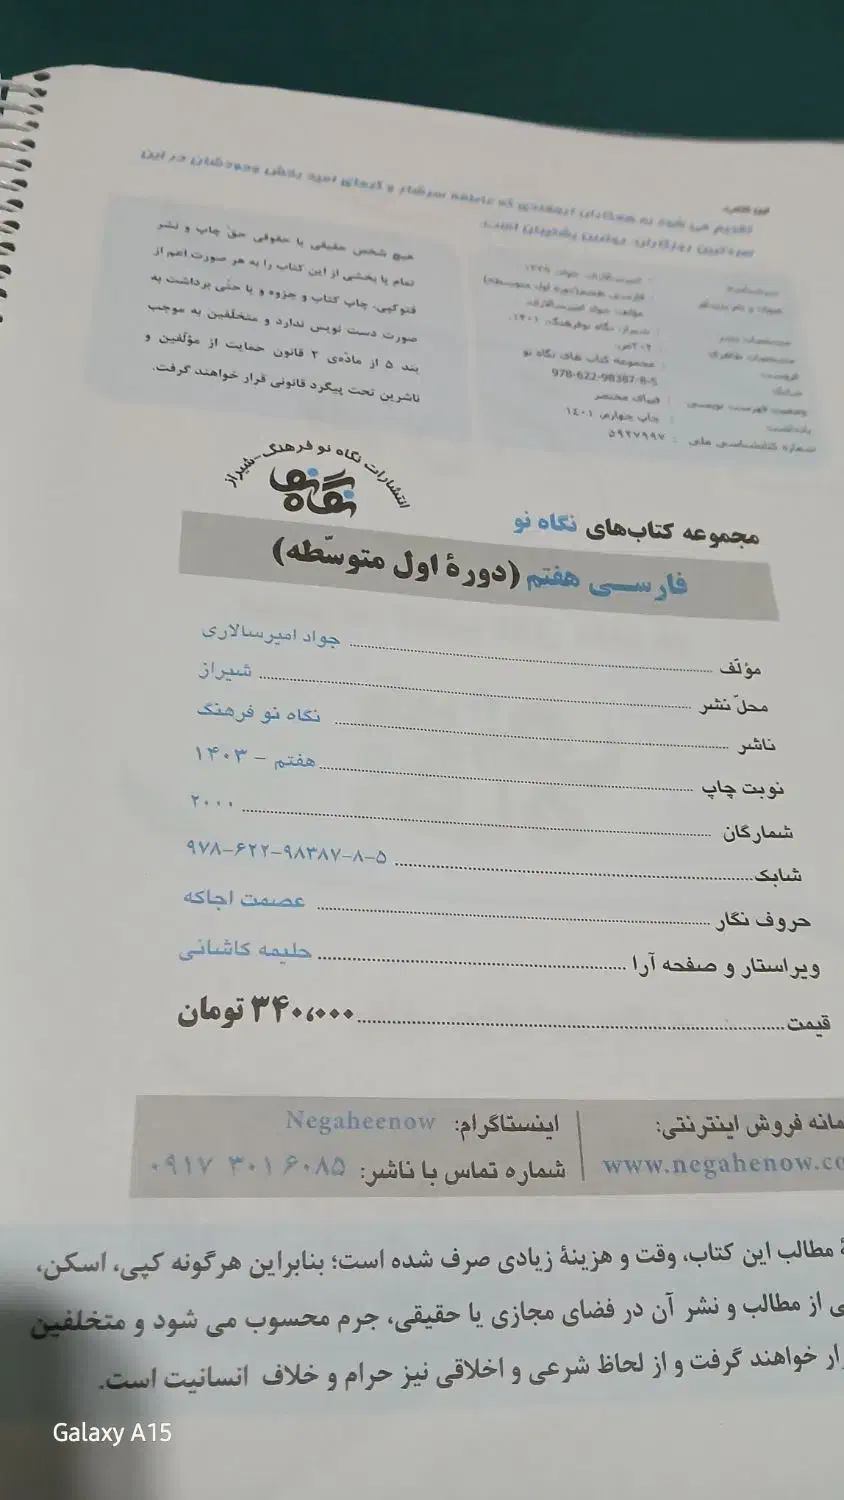 این کتاب
تقدیم می شود به همکاران ارجمندی که عاطفه سرشار و گرمای امید بخش وجودشان در این
سردترین روزگاران، بهترین پشتیبان است.
سرشناسه : امیرسالاری، جواد، ۱۳۴۹
عنوان و نام پدیدآور : فارسی هفتم(دوره اول متوسطه)
مؤلف: جواد امیرسالاری.
مشخصات نشر : شیراز: نگاه نوفرهنگ، ۱۴۰۱.
مشخصات ظاهری : ۲۰۲ص.
فروست : مجموعه کتاب های نگاه نو
شابک : 978-622-98387-8-5
وضعیت فهرست نویسی : فیپای مختصر
یادداشت : چاپ چهارم، ۱۴۰۱
شماره کتابشناسی ملی : ۵۹۲۷۹۹۷
هیچ شخص حقیقی یا حقوقی حق چاپ و نشر
تمام یا بخشی از این کتاب را به هر صورت اعم از
فتوکپی، چاپ کتاب و جزوه و یا حتّی برداشت به
صورت دست نویس ندارد و متخلّفین به موجب
بند ۵ از مادّه‌ی ۲ قانون حمایت از مؤلفین و
ناشرین تحت پیگرد قانونی قرار خواهند گرفت.
انتشارات نگاه نو فرهنگ-شیراز
نگاه نو
مجموعه کتاب‌های نگاه نو
فارسی هفتم (دورهٔ اول متوسّطه)
مؤلّف ........ جواد امیرسالاری
محلّ نشر ........ شیراز
ناشر ........ نگاه نو فرهنگ
نوبت چاپ ........ هفتم – ۱۴۰۳
شمارگان ........ ۲۰۰۰
شابک ........ ۹۷۸-۶۲۲-۹۸۳۸۷-۸-۵
حروف نگار ........ عصمت اجاکه
ویراستار و صفحه آرا ........ حلیمه کاشانی
قیمت ........ ۳۴۰،۰۰۰ تومان
مانه فروش اینترنتی: | اینستاگرام: Negaheenow
www.negahenow.co | شماره تماس با ناشر: ۰۹۱۷ ۳۰۱ ۶۰۸۵
مطالب این کتاب، وقت و هزینهٔ زیادی صرف شده است؛ بنابراین هرگونه کپی، اسکن،
ی از مطالب و نشر آن در فضای مجازی یا حقیقی، جرم محسوب می شود و متخلفین
ار خواهند گرفت و از لحاظ شرعی و اخلاقی نیز حرام و خلاف انسانیت است.
Galaxy A15